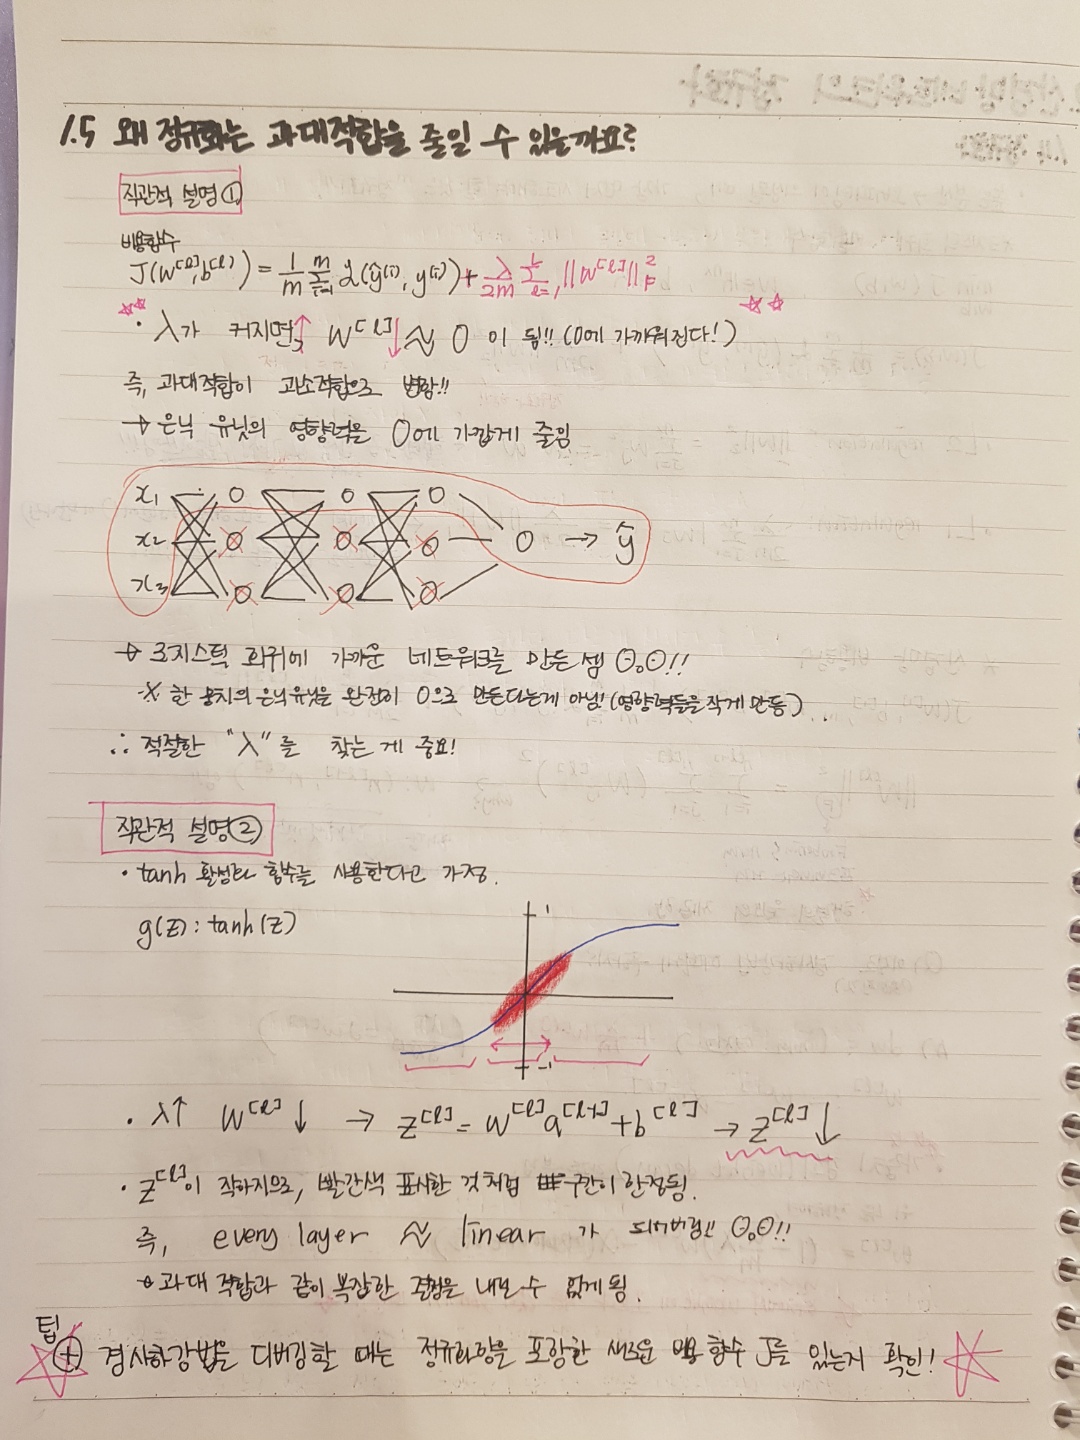 1.5 왜 정규화는 과대적합을 줄일 수 있을까요?
직관적 설명①
비용함수
J(W^[l], b^[l]) = 1/m Σ_{i=1}^{m} L(ŷ^(i), y^(i)) + λ/2m Σ_{l=1}^{L} ||W^[l]||²_F
· λ가 커지면↑, W^[l]↓ ≈ 0 이 됨!! (0에 가까워진다!)
즉, 과대적합이 과소적합으로 변함!!
→ 은닉 유닛의 영향력을 0에 가깝게 줄임
x₁ 0 0 0
x₂ 0 0 0 0 → ŷ
x₃ 0 0 0
→ 로지스틱 회귀에 가까운 네트워크를 만든 셈 ⊙.⊙!!
※ 한 뭉치의 은닉유닛을 완전히 0으로 만든다는게 아님! (영향력들을 작게 만듦)
∴ 적절한 "λ"를 찾는 게 중요!
직관적 설명②
· tanh 활성화 함수를 사용한다고 가정.
g(z) : tanh(z)
1
-1
· λ↑ W^[l]↓ → z^[l] = W^[l]a^[l-1] + b^[l] → z^[l]↓
· z^[l]이 작아지므로, 빨간색 표시한 것처럼 구간이 한정됨.
즉, every layer ≈ linear 가 되어버림!! ⊙.⊙!!
→ 과대 적합과 같이 복잡한 결정을 내릴 수 없게 됨.
팁
⊕ 경사하강법을 디버깅할 때는 정규화항을 포함한 새로운 비용 함수 J를 있는지 확인!